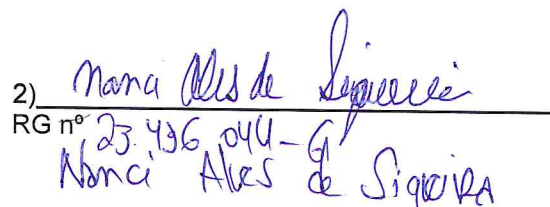 2) Nanci Alves de Siqueira
RG nº 23.436.044-G
Nanci Alves de Siqueira